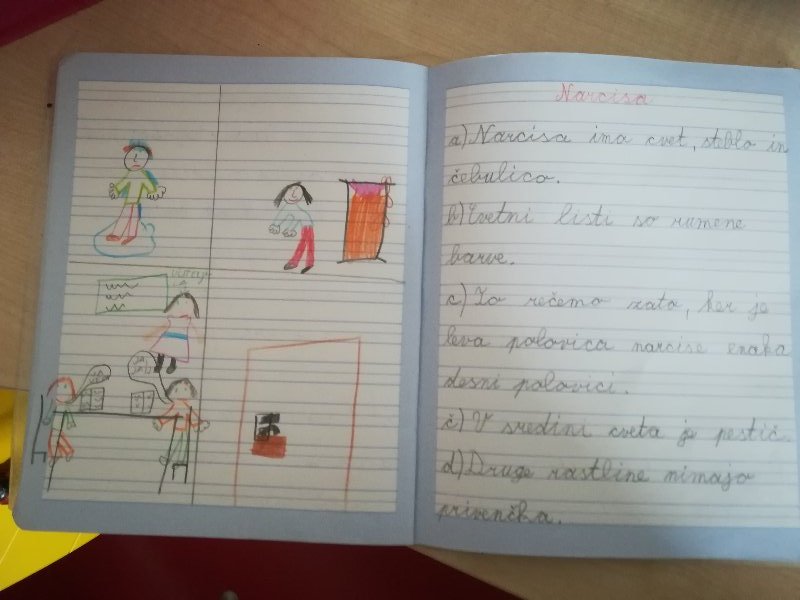 Narcisa
a) Narcisa ima cvet, steblo in
čebulico.
b) Cvetni listi so rumene
barve.
c) To rečemo zato, ker je
leva polovica narcise enaka
desni polovici.
č) V sredini cveta je pestič.
d) Druge rastline nimajo
privenčka.